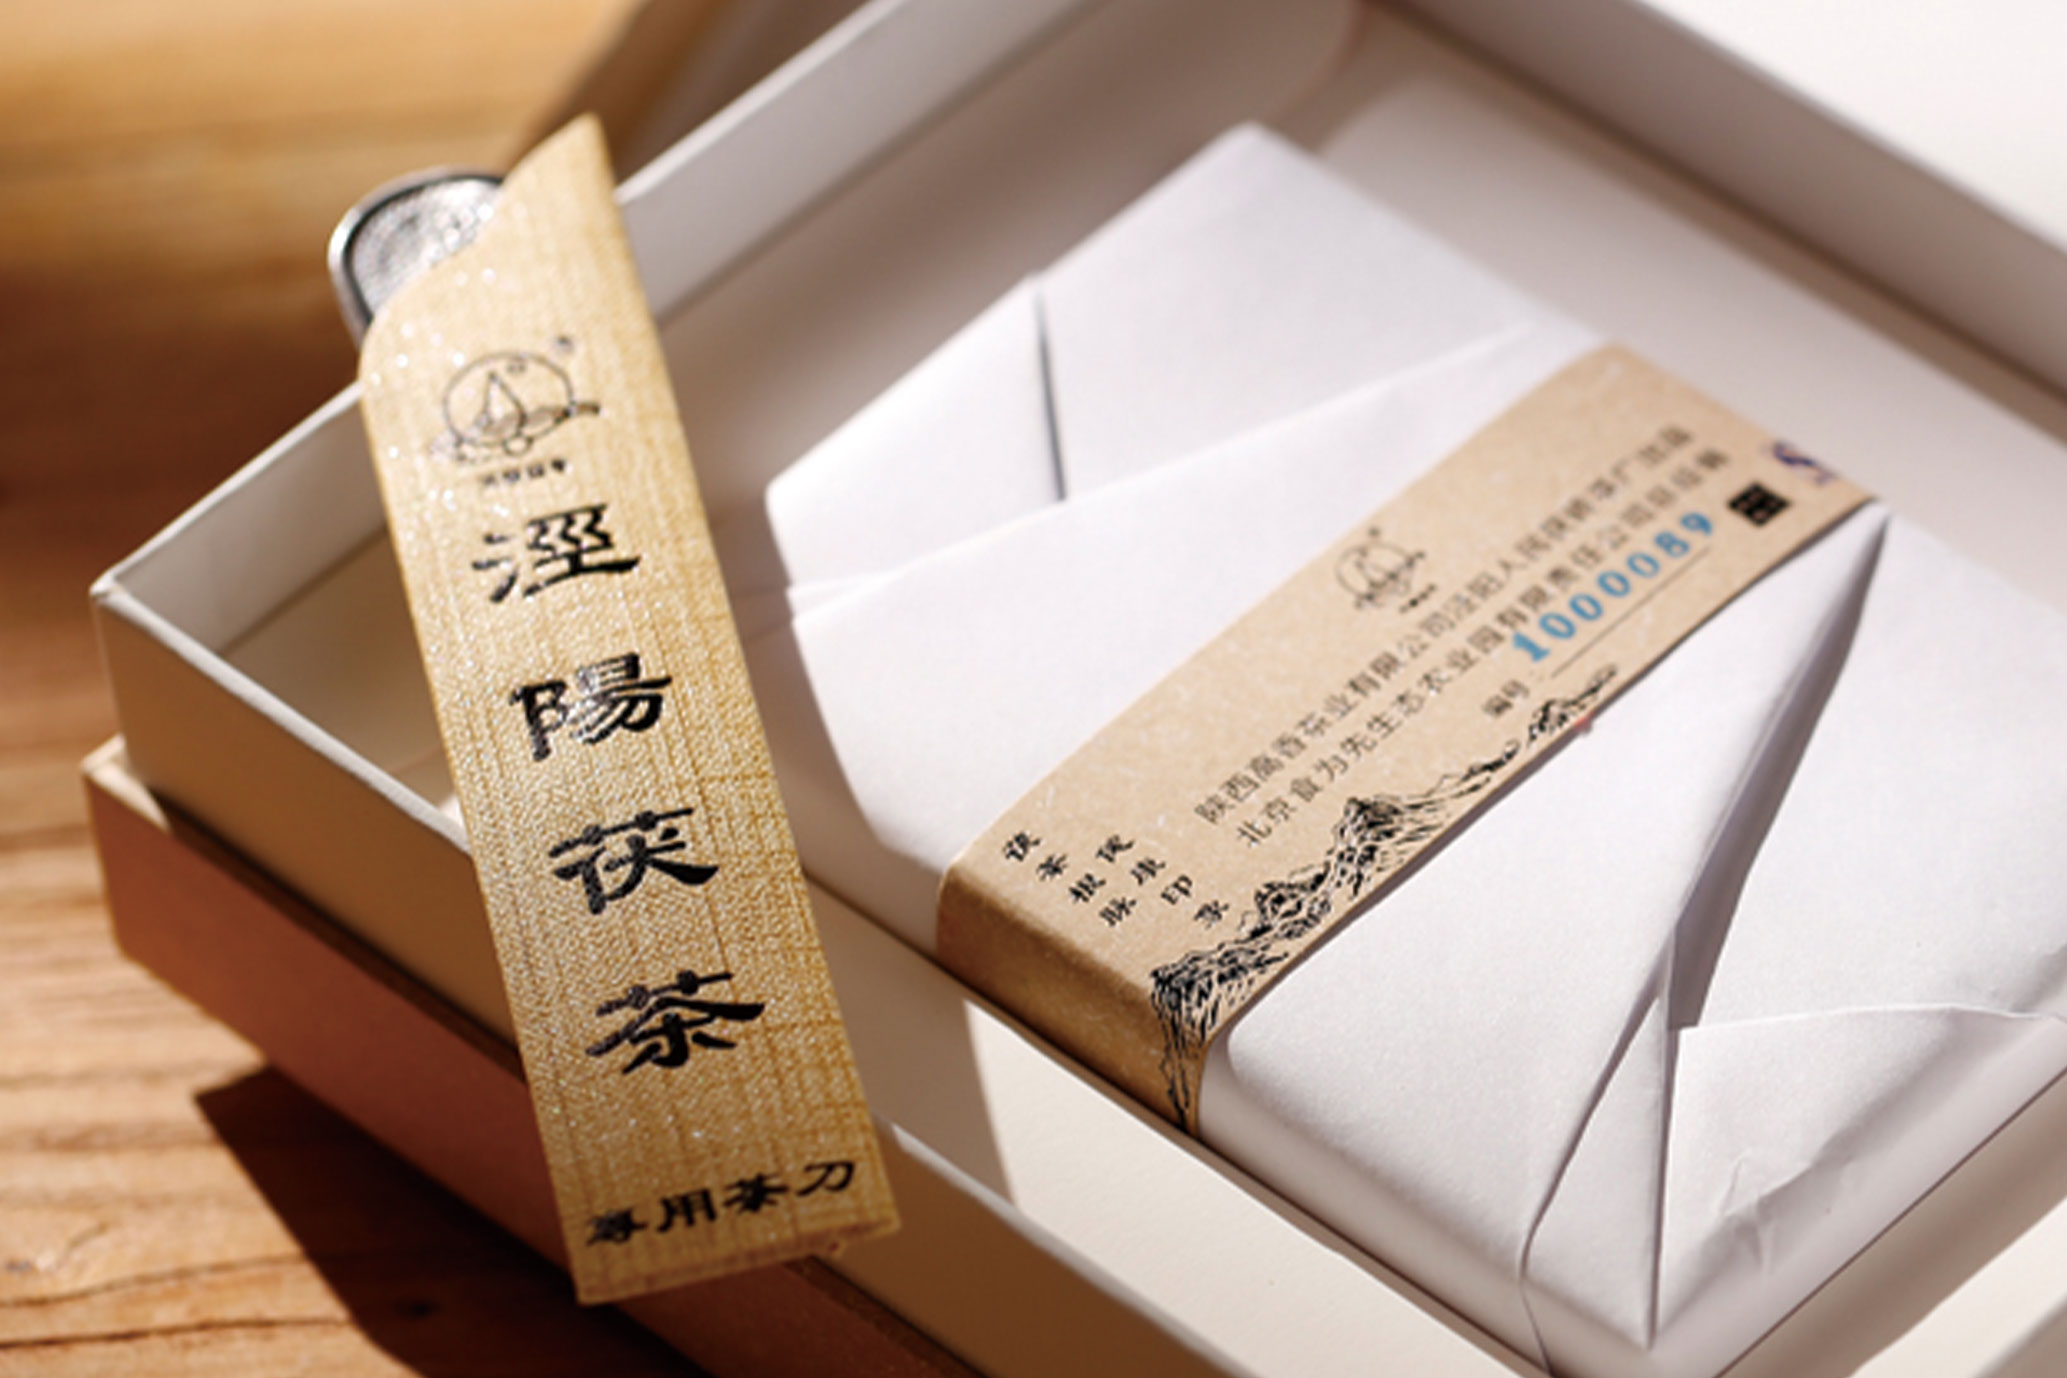 涇陽茯茶
專用茶刀
陕西高香茶业有限公司泾阳人民茯砖茶厂出品
北京食为先生态农业园有限责任公司总经销
编号
1000089
茯茶根脉
官康印象